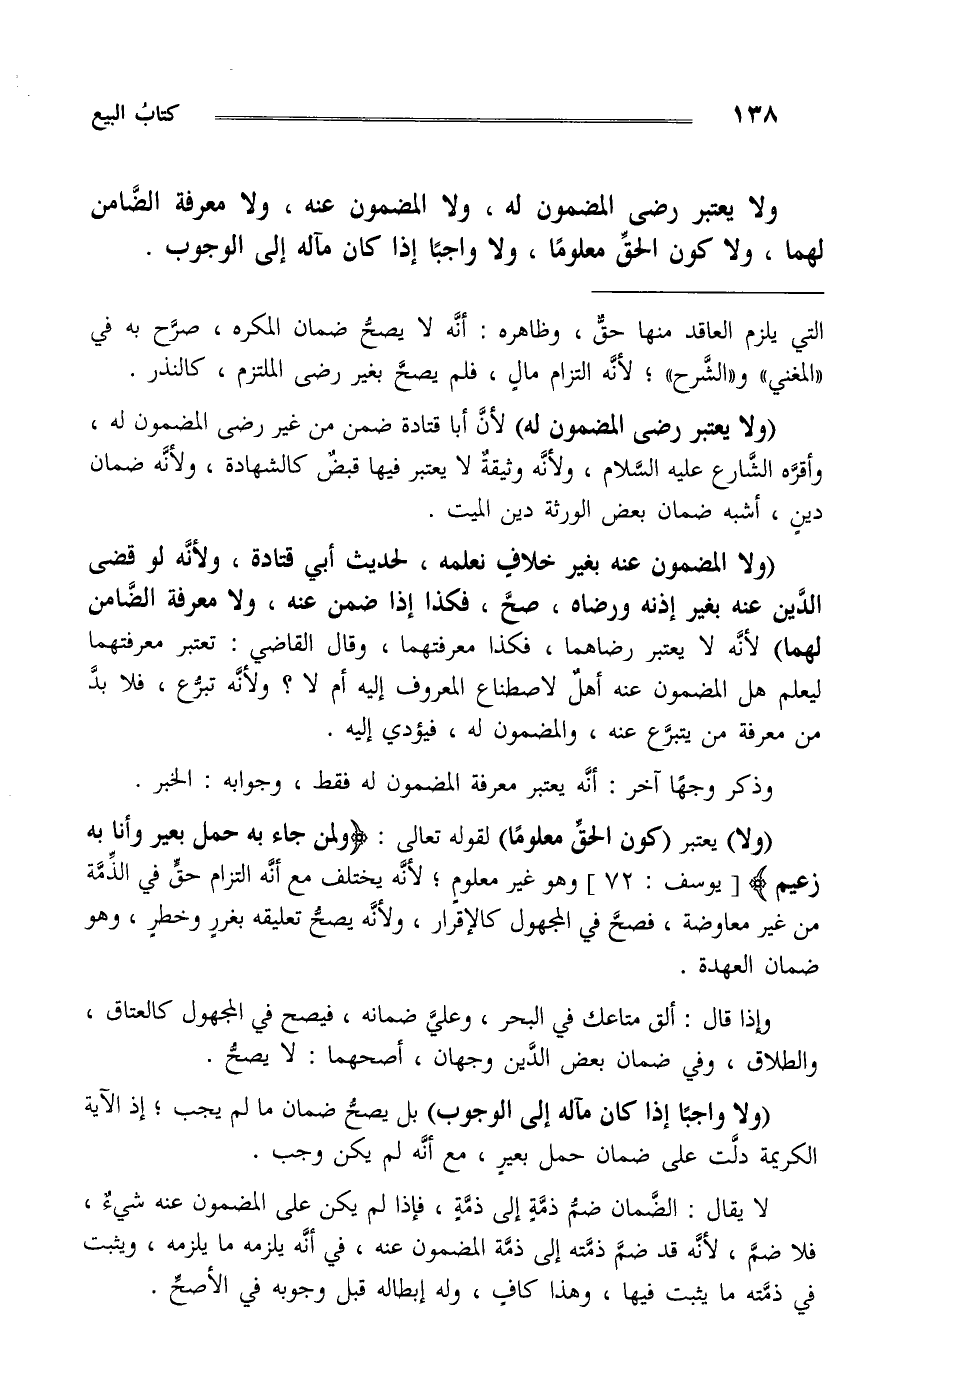 ١٣٨ كتابُ البيع
ولا يعتبر رضى المضمون له ، ولا المضمون عنه ، ولا معرفة الضَّامن
لهما ، ولا كون الحقِّ معلومًا ، ولا واجبًا إذا كان مآله إلى الوجوب .
التي يلزم العاقد منها حقٌّ ، وظاهره : أنَّه لا يصحُّ ضمان المكره ، صرَّح به في
«المغني» و«الشَّرح» ؛ لأنَّه التزام مالٍ ، فلم يصحَّ بغير رضى الملتزم ، كالنذر .
(ولا يعتبر رضى المضمون له) لأنَّ أبا قتادة ضمن من غير رضى المضمون له ،
وأقرَّه الشَّارع عليه السَّلام ، ولأنَّه وثيقةٌ لا يعتبر فيها قبضٌ كالشهادة ، ولأنَّه ضمان
دينٍ ، أشبه ضمان بعض الورثة دين الميت .
(ولا المضمون عنه بغير خلافٍ نعلمه ، لحديث أبي قتادة ، ولأنَّه لو قضى
الدَّين عنه بغير إذنه ورضاه ، صحَّ ، فكذا إذا ضمن عنه ، ولا معرفة الضَّامن
لهما) لأنَّه لا يعتبر رضاهما ، فكذا معرفتهما ، وقال القاضي : تعتبر معرفتهما
ليعلم هل المضمون عنه أهلٌ لاصطناع المعروف إليه أم لا ؟ ولأنَّه تبرُّع ، فلا بدَّ
من معرفة من يتبرَّع عنه ، والمضمون له ، فيؤدي إليه .
وذكر وجهًا آخر : أنَّه يعتبر معرفة المضمون له فقط ، وجوابه : الخبر .
(ولا) يعتبر (كون الحقِّ معلومًا) لقوله تعالى : ﴿ولمن جاء به حمل بعير وأنا به
زعيم﴾ [ يوسف : ٧٢ ] وهو غير معلومٍ ؛ لأنَّه يختلف مع أنَّه التزام حقٍّ في الذِّمَّة
من غير معاوضة ، فصحَّ في المجهول كالإقرار ، ولأنَّه يصحُّ تعليقه بغررٍ وخطرٍ ، وهو
ضمان العهدة .
وإذا قال : ألق متاعك في البحر ، وعليَّ ضمانه ، فيصح في المجهول كالعتاق ،
والطلاق ، وفي ضمان بعض الدَّين وجهان ، أصحهما : لا يصحُّ .
(ولا واجبًا إذا كان مآله إلى الوجوب) بل يصحُّ ضمان ما لم يجب ؛ إذ الآية
الكريمة دلَّت على ضمان حمل بعيرٍ ، مع أنَّه لم يكن وجب .
لا يقال : الضَّمان ضمُّ ذمَّةٍ إلى ذمَّةٍ ، فإذا لم يكن على المضمون عنه شيءٌ ،
فلا ضمَّ ، لأنَّه قد ضمَّ ذمَّته إلى ذمَّة المضمون عنه ، في أنَّه يلزمه ما يلزمه ، ويثبت
في ذمَّته ما يثبت فيها ، وهذا كافٍ ، وله إبطاله قبل وجوبه في الأصحِّ .